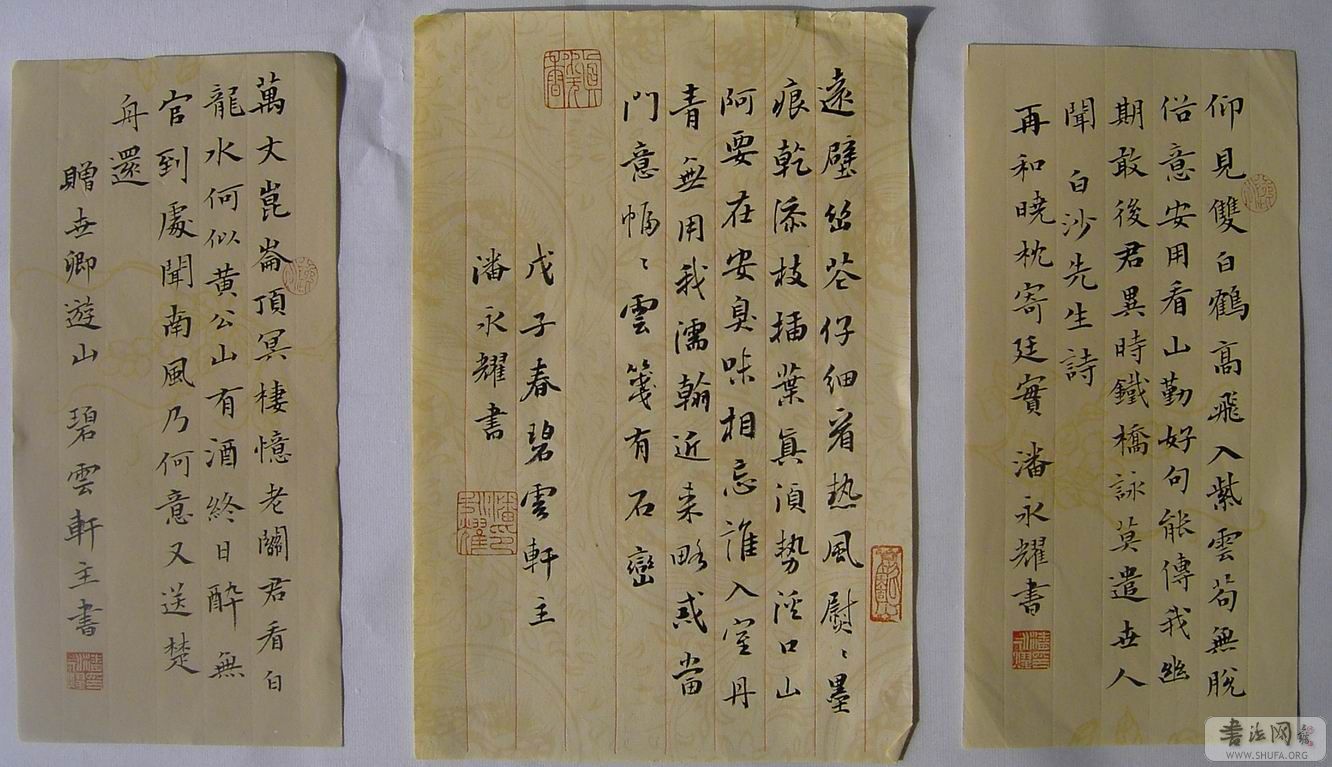 仰見雙白鶴高飛入紫雲苟無脫
俗意安用看山勤好句能傳我幽
期敢後君異時鐵橋詠莫遣世人
聞 白沙先生詩
再和曉枕寄廷實 潘永耀書
遠壁 仔細看热風熨〻墨
痕乾添枝插葉真 勢 口山
阿要在安臭味相忘誰入室丹
青無用我濡翰近来略 當
門意 〻雲箋有石巒
戊子春碧雲軒主
潘永耀書
萬丈崑崙頂冥棲憶老關君看白
龍水何似黄公山有酒終日醉無
官到處聞南風乃何意又送楚
舟還
贈世卿遊山 碧雲軒主書
書法网
WWW.SHUFA.ORG